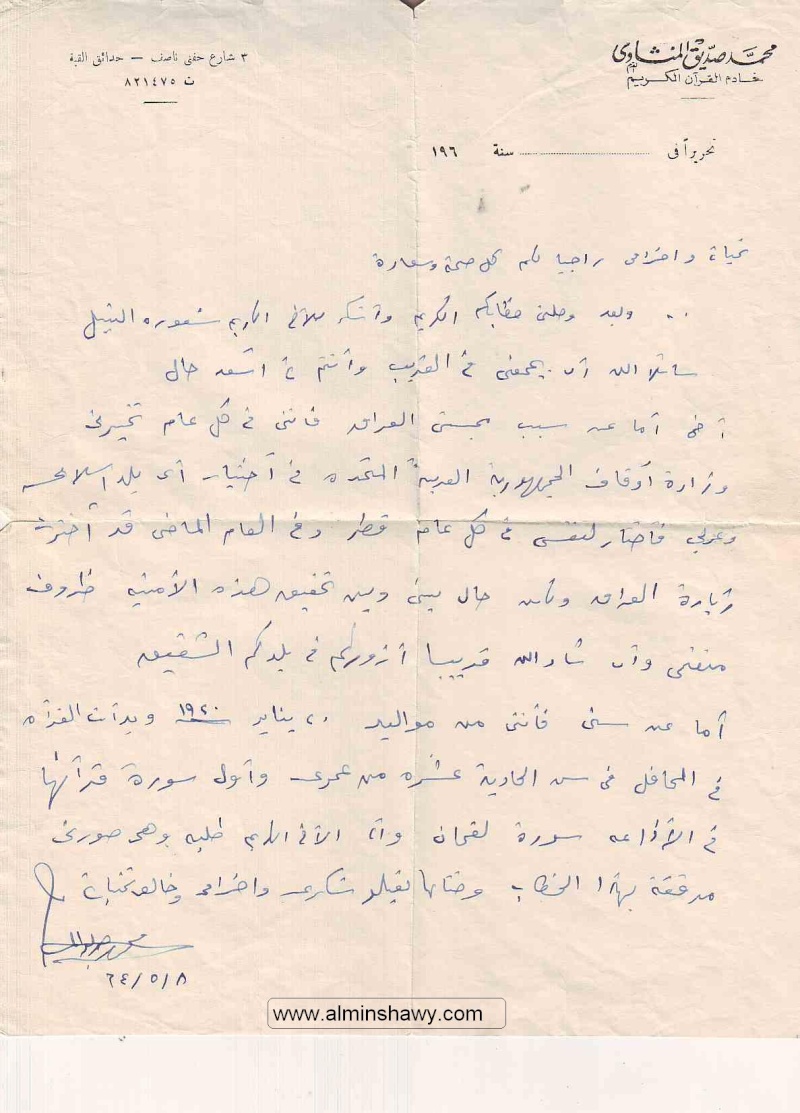 محمد صديق المنشاوى
خادم القرآن الكريم
٣ شارع حفنى ناصف — حدائق القبة
ت ٨٢١٤٧٥
تحريراً فى ............ سنة ١٩٦
تحياتى واحترامى راجيا لكم كل صحة وسعادة
.. وبعد وصلنى خطابكم الكريم وأشكر للأخ الكريم شعوره النبيل
سائلا الله أن يجمعنى فى القريب وأنتم فى أسعد حال
أخى أما عن سبب العراق فأننى فى كل عام تخيرنى
وزارة أوقاف الجمهورية العربية المتحده فى أختيار أى بلد اسلامى
وعربى فأختار لنفسى فى كل عام قطر وفى العام الماضى قد أخترت
زيارة العراق ولكن حال بينى وبين تحقيق هذه الأمنيه ظروف
منعتنى وأن شاء الله قريبا أزوركم فى بلدكم الشقيق
أما عن سنى فأننى من مواليد ٢٠ يناير ١٩٢٠ وبدأت القرآه
فى المحافل فى سن الحادية عشره من عمرى وأول سورة قرأتها
فى الأذاعه سورة لقمان وأن الأخ الكريم طلبه وهى صورتى
مرفقة بهذا الخطاب وختاما تقبلو شكرى واحترامى وخالص تحياتى
٦٤/٥/٨
www.alminshawy.com